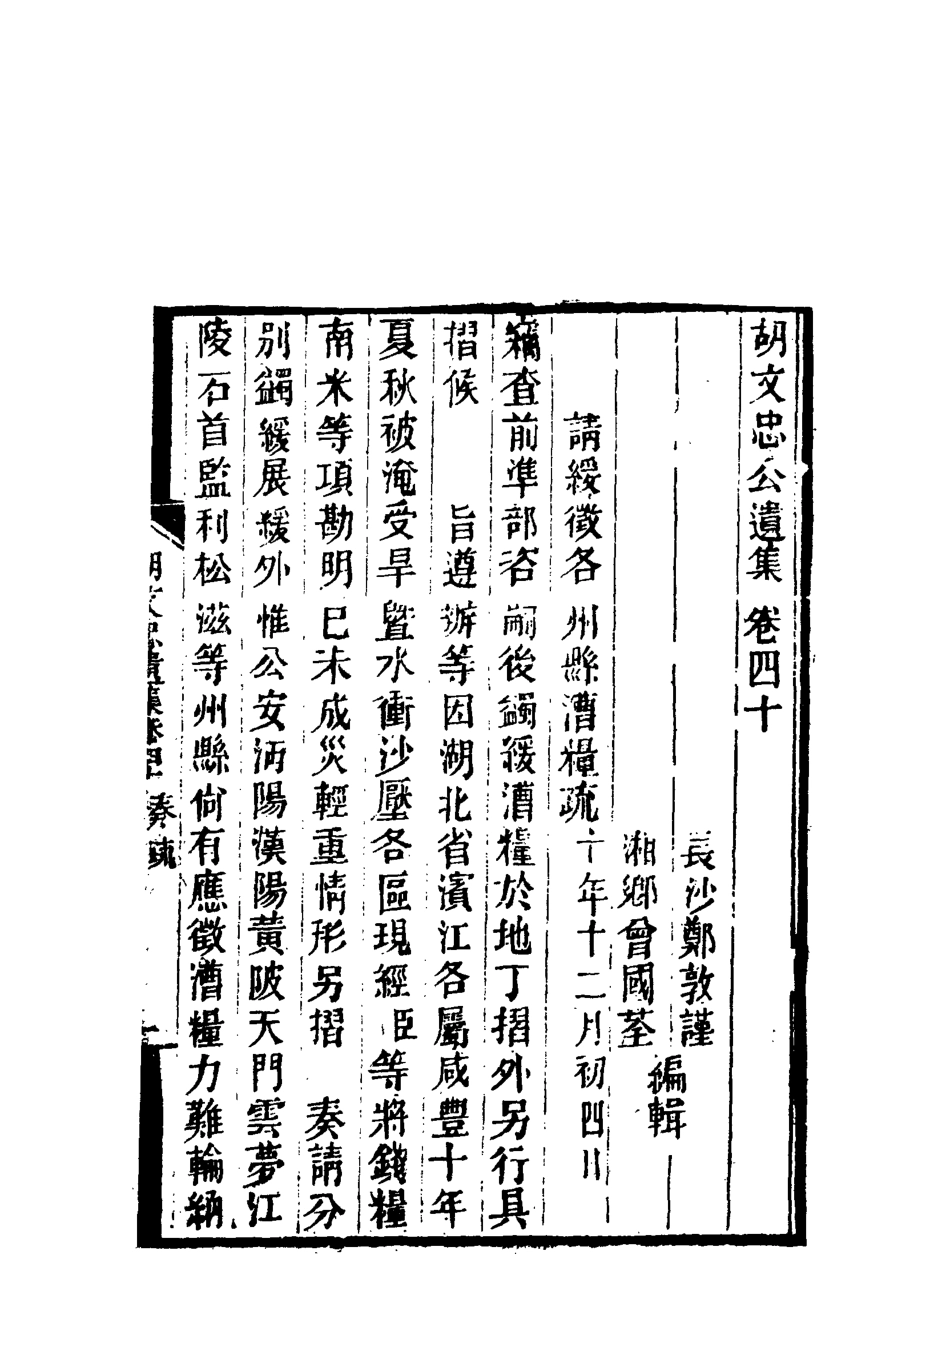 胡文忠公遺集卷四十
長沙鄭敦謹
湘鄉曾國荃
編輯
請緩徵各州縣漕糧疏 十年十二月初四日
竊查前準部咨嗣後蠲緩漕糧於地丁摺外另行具
摺候 旨遵辦等因湖北省濱江各屬咸豐十年
夏秋被淹受旱暨水衝沙壓各區現經臣等將錢糧
南米等項勘明已未成災輕重情形另摺 奏請分
別蠲緩展緩外惟公安沔陽漢陽黃陂天門雲夢江
陵石首監利松滋等州縣尙有應徵漕糧力難輸納
胡文忠公遺集卷四十 奏疏 一